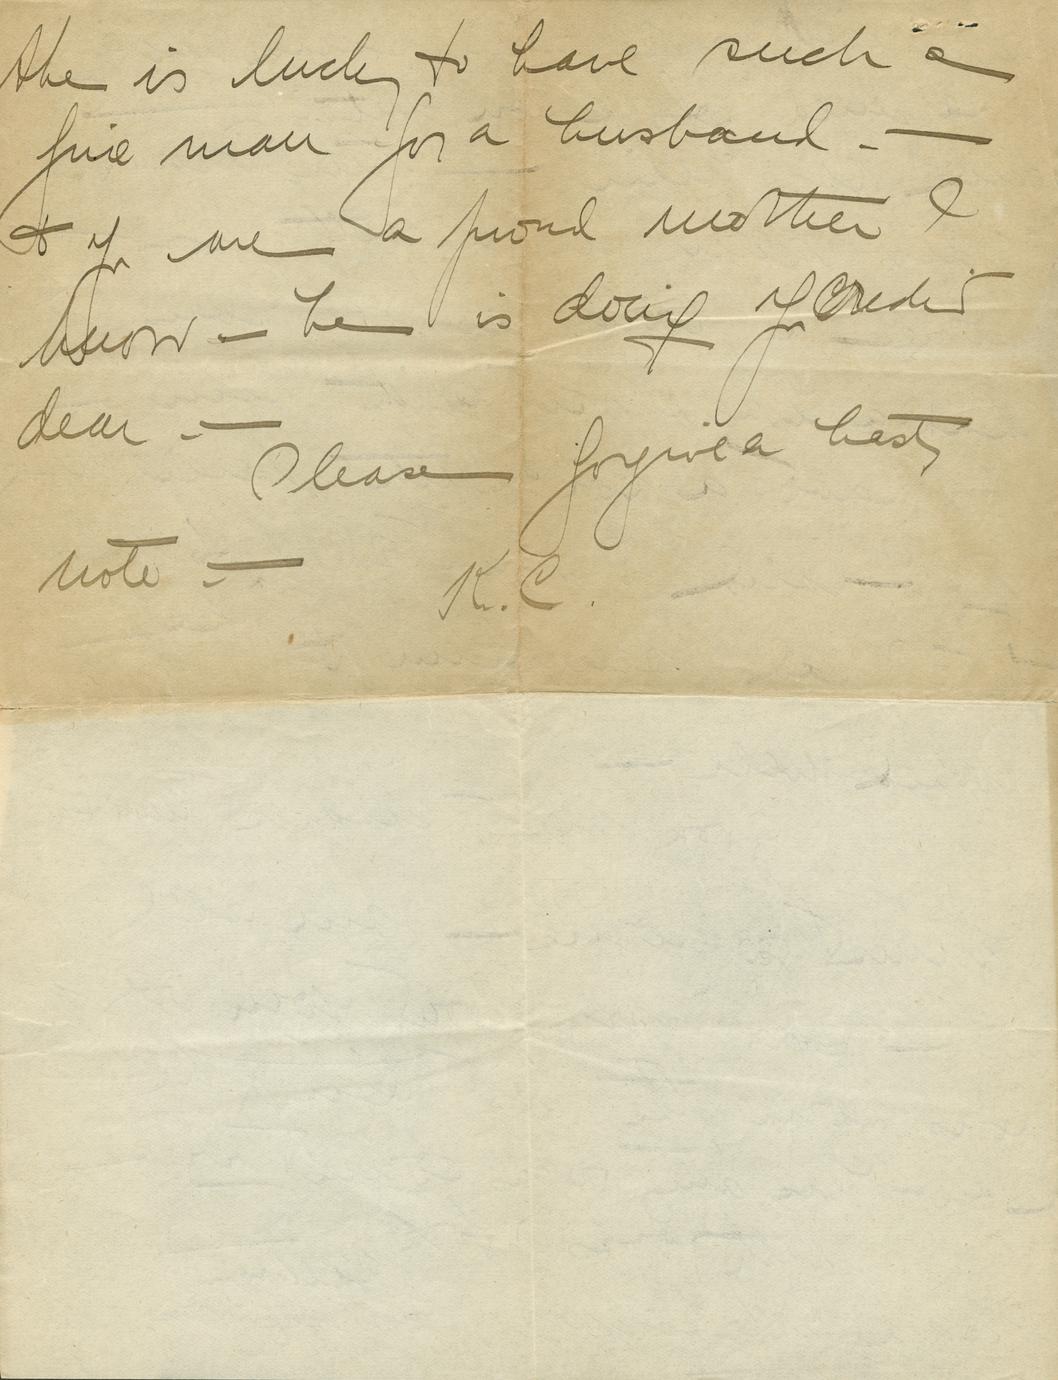 She is lucky to have such a
fine man for a husband. —
& yr are a proud mother I
know — he is doing yr credit
dear. —
Please forgive a hasty
note. —
K.C.